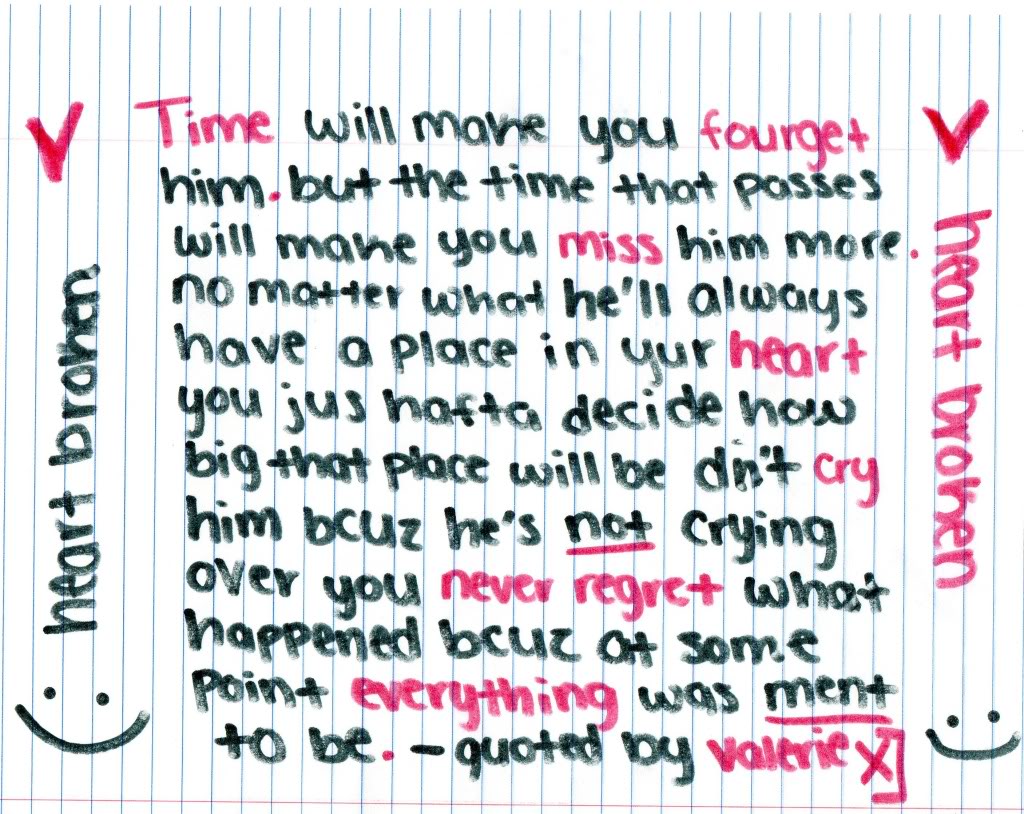 Time will make you fourget
him. but the time that passes
will make you miss him more.
no matter what he'll always
have a place in yur heart
you jus hafta decide how
big that place will be dn't cry
him bcuz he's not crying
over you never regret what
happened bcuz at some
point everything was ment
to be. - quoted by valerie x]
heart broken
heart broken